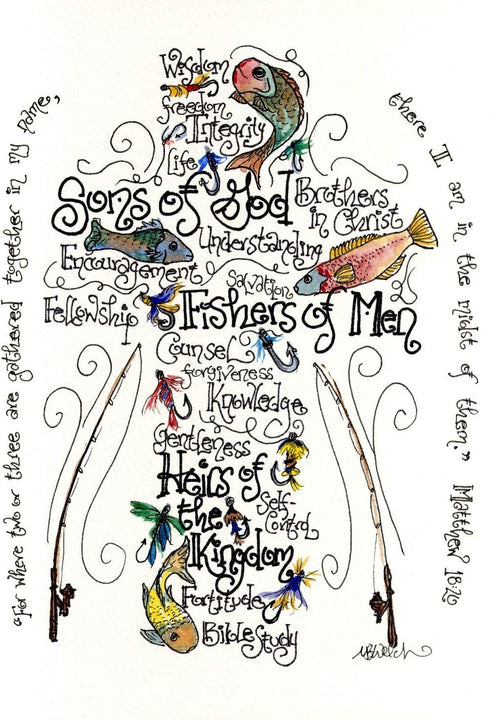 "For where two or three are gathered together in my name,
there I am in the midst of them." Matthew 18:20
Wisdom
freedom
Integrity
Life
Sons of God
Brothers
in Christ
Understanding
Encouragement
Salvation
Fellowship
Fishers of Men
Counsel
forgiveness
Knowledge
Gentleness
Heirs of
the
Self-
Control
Kingdom
Fortitude
Bible Study
MBWelch